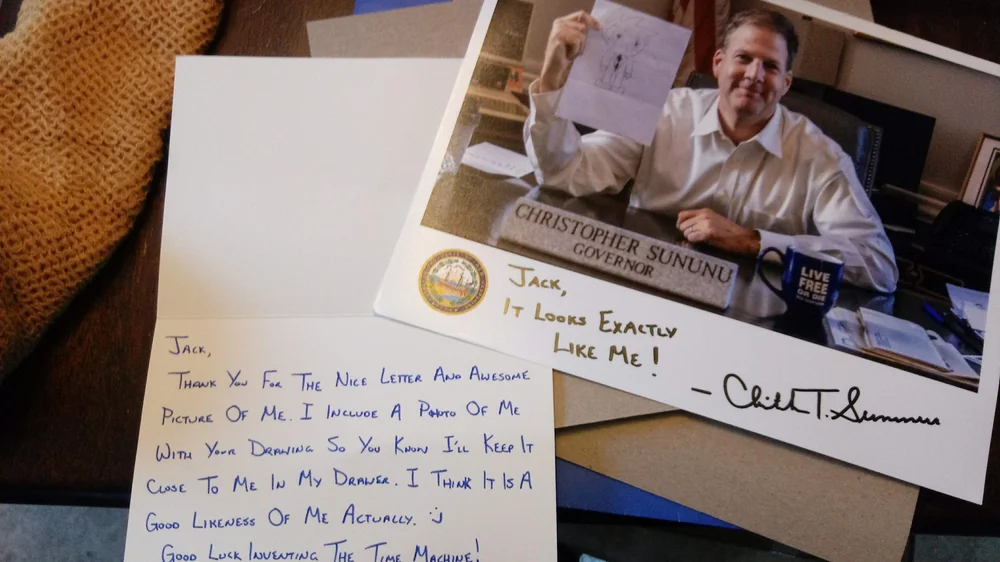 CHRISTOPHER SUNUNU
GOVERNOR
LIVE
FREE
OR DIE
JACK,
IT LOOKS EXACTLY
LIKE ME!
JACK,
THANK YOU FOR THE NICE LETTER AND AWESOME
PICTURE OF ME. I INCLUDE A PHOTO OF ME
WITH YOUR DRAWING SO YOU KNOW I'LL KEEP IT
CLOSE TO ME IN MY DRAWER. I THINK IT IS A
GOOD LIKENESS OF ME ACTUALLY. :)
GOOD LUCK INVENTING THE TIME MACHINE!